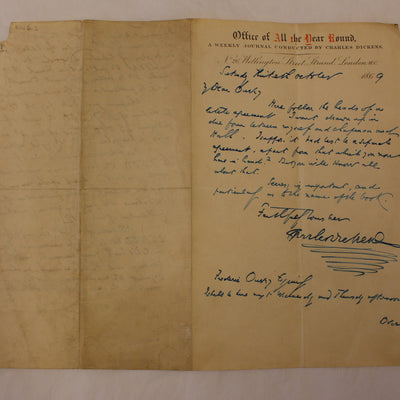 Office of All the Year Round,
A WEEKLY JOURNAL CONDUCTED BY CHARLES DICKENS.
No. 26 Wellington Street, Strand, London, W.C.
October 1869
My Dear Ouvry
Here follow the heads of an
agreement I want drawn up in
due form between myself and Chapman and
Hall. I suppose it had best be a separate
agreement, apart from that which you now
have in hand? But you will know all
about that.
Secrecy is important, and
particularly as to the name of the book.
Faithfully Yours ever
Charles Dickens
Frederic Ouvry Esquire
Wednesday and Thursday afternoon
Over